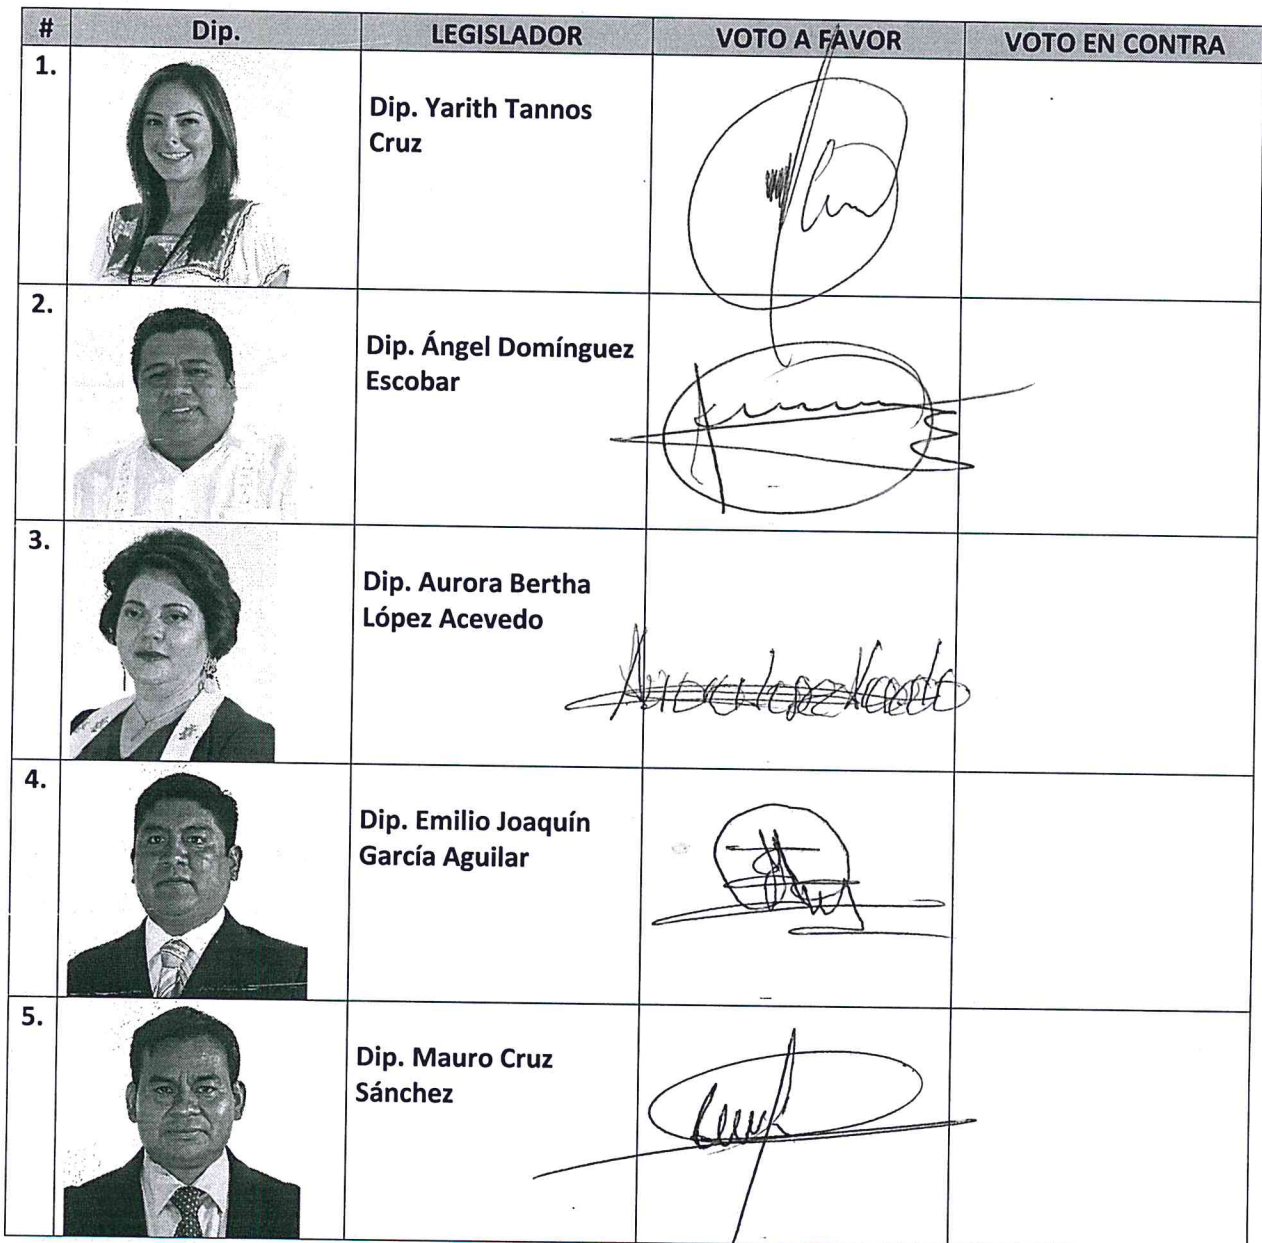 # Dip. LEGISLADOR VOTO A FAVOR VOTO EN CONTRA
1.
Dip. Yarith Tannos
Cruz
2.
Dip. Ángel Domínguez
Escobar
3.
Dip. Aurora Bertha
López Acevedo
Aurora Lopez Acevedo
4.
Dip. Emilio Joaquín
García Aguilar
5.
Dip. Mauro Cruz
Sánchez